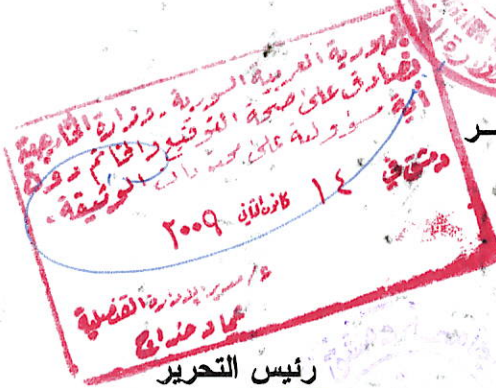 الجمهورية العربية السورية - وزارة الخارجية
نصادق على صحة التوقيع والخاتم دون
أية مسؤولية على محتويات الوثيقة.
دمشق في ١٤ كانون الثاني ٢٠٠٩
ع/ مدير الإدارة القنصلية
عماد
ـر
رئيس التحرير